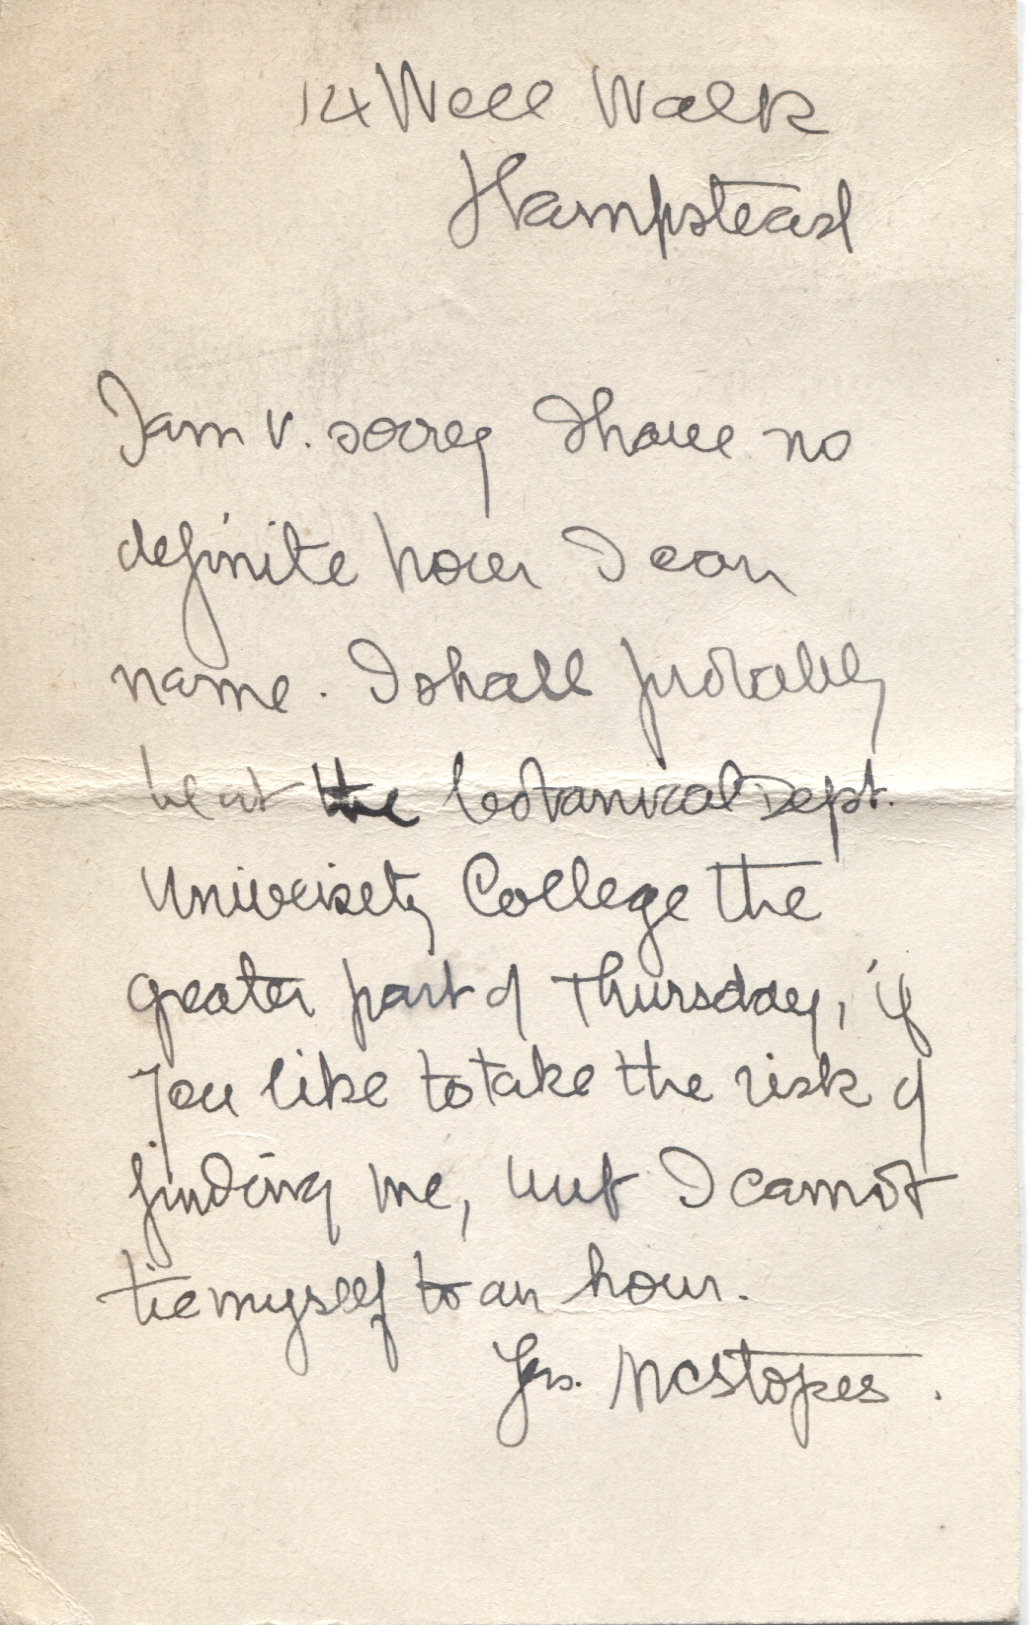 14 Well Walk
Hampstead
I am v. sorry I have no
definite hour I can
name. I shall probably
be at the botanical Dept.
University College the
greater part of Thursday, if
you like to take the risk of
finding me, but I cannot
tie myself to an hour.
Yrs. MCStopes.